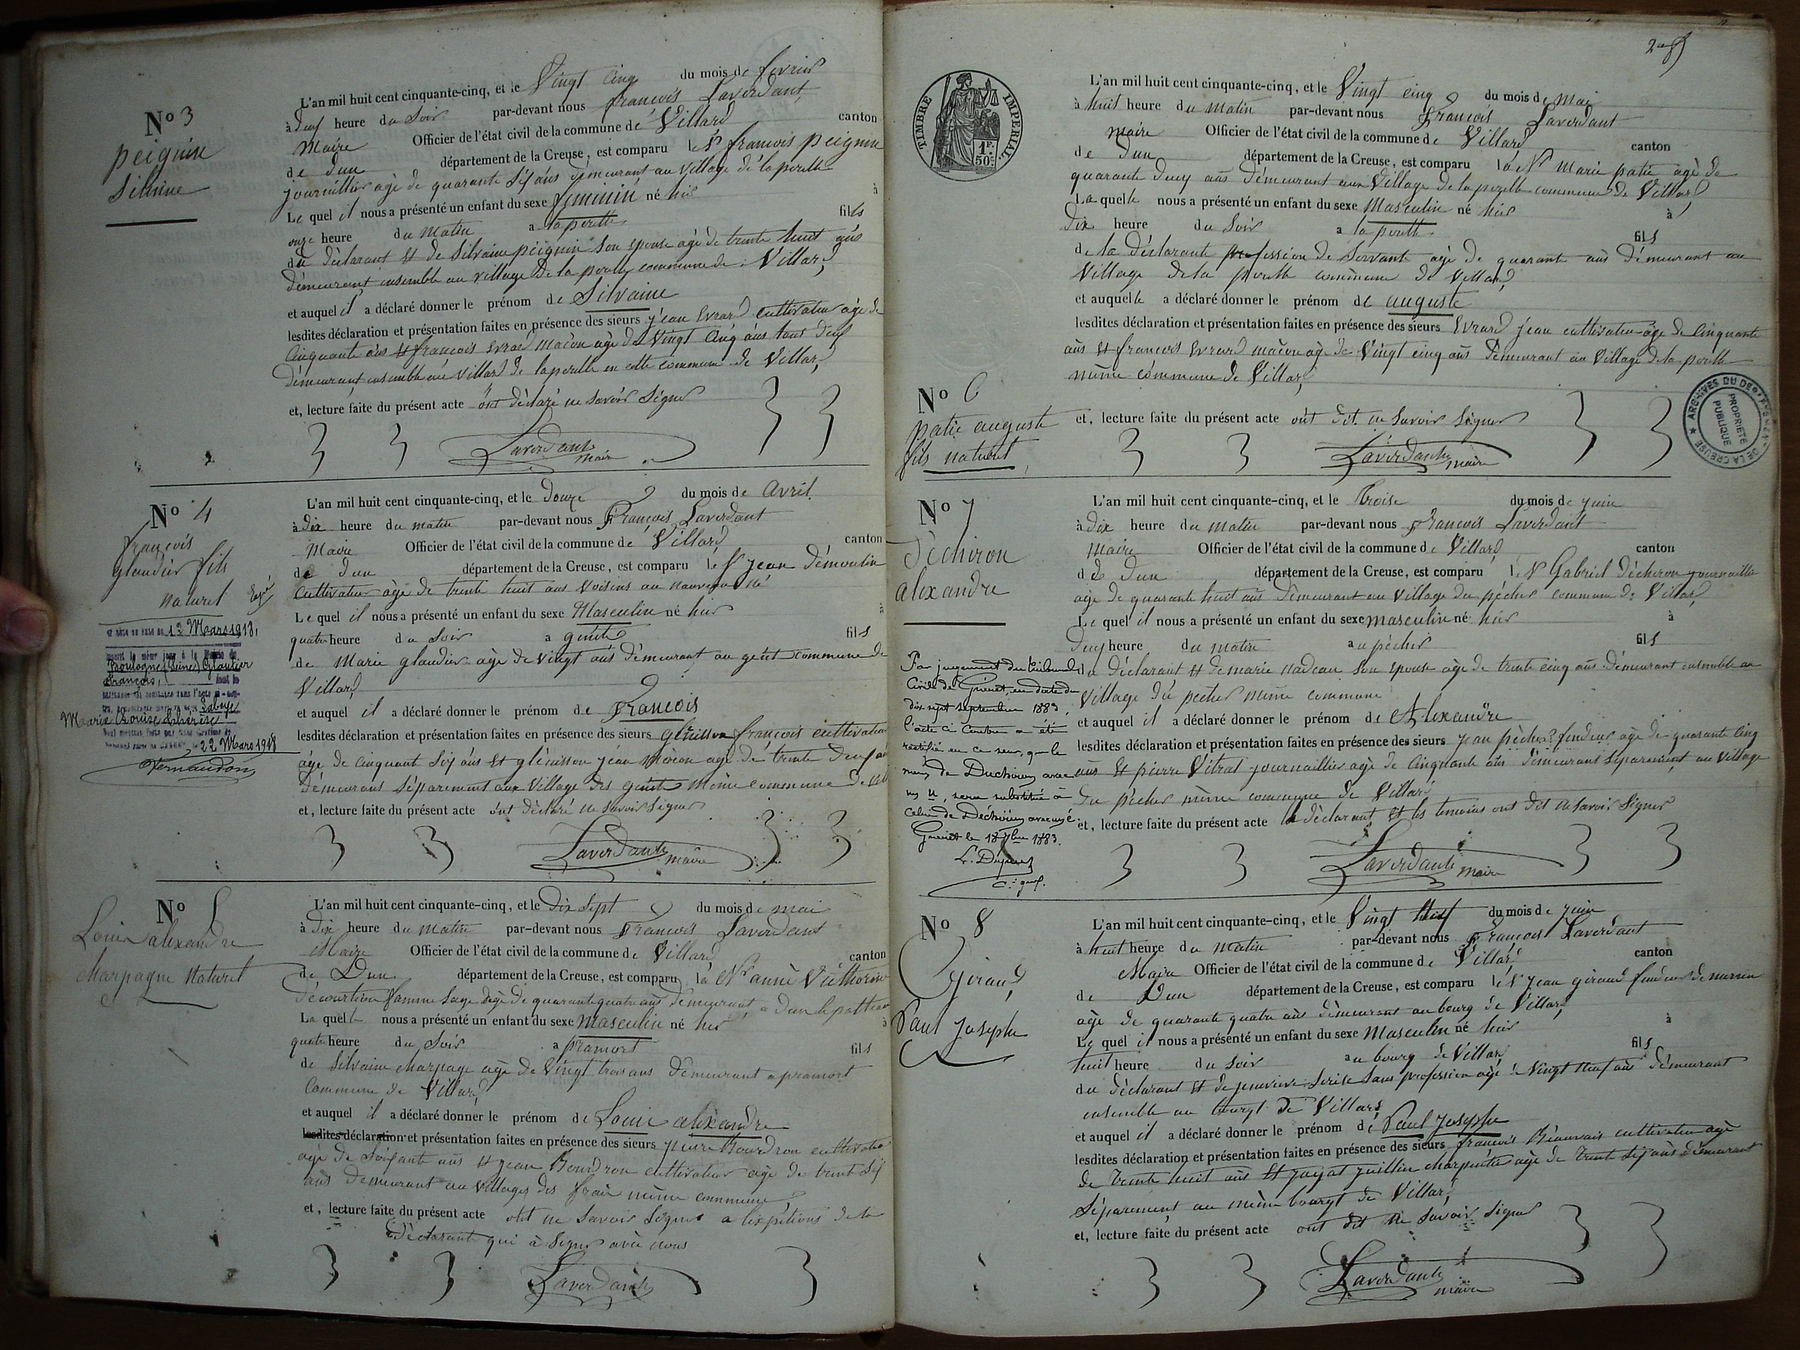 N° 3
peignin
Silvine
L'an mil huit cent cinquante-cinq, et le Vingt cinq du mois de fevrier
à Deuf heure du Soir par-devant nous françois Laverdant
Maire Officier de l'état civil de la commune de Villard canton
de Dun département de la Creuse, est comparu le Sr françois peignin
journaillier age de quarante Sif ans demeurant au Village de la
Le quel il nous a présenté un enfant du sexe feminin né hier à
onze heure du Matin a fils
du declarant et de Silvaine peignin Son epouse age de trente huit ans
demeurant ensemble au village De la commune de Villard
et auquel il a déclaré donner le prénom de Silvaine
lesdites déclaration et présentation faites en présence des sieurs jean Evrard cultivateur age de
Cinquant ans et françois Evrard maçon age de Vingt Cinq ans tous deuf
demeurant ensemble au Villard de en cette commune de Villard
et, lecture faite du présent acte ont déclaré ne Savoir Signer
Laverdant
maire
N° 4
françois
glaudier fils
naturel
13 Mars 1918
Boulogne (Seine) Glaudier
François,
Marie Louise Thérèse
22 Mars 1918
L'an mil huit cent cinquante-cinq, et le Douze du mois de Avril
à Dix heure du matin par-devant nous François Laverdant
Maire Officier de l'état civil de la commune de Villard canton
de Dun département de la Creuse, est comparu le Sr jean Démoulin
Cultivateur age de trente huit ans Voisins au nauveau né
Le quel il nous a présenté un enfant du sexe Masculin né hier à
quatre heure du Soir a fils
de Marie glaudier age de Vingt ans demeurant au commune de
Villard
et auquel il a déclaré donner le prénom de François
lesdites déclaration et présentation faites en présence des sieurs françois cultivateur
age de cinquant Sif ans et glénisson jean Maçon age de trente Deuf ans
demeurans Séparement aux Village des même commune De
et, lecture faite du présent acte ont déclaré ne Savoir Signer
Laverdant
maire
N° 5
Louis alexandre
charpagne Naturel
L'an mil huit cent cinquante-cinq, et le Dix Sept du mois de mai
à Dix heure du matin par-devant nous François Laverdant
Maire Officier de l'état civil de la commune de Villard canton
de Dun département de la Creuse, est comparu la anne Victhorine
famme Sage age de quarante quatre ans demeurant a Dun le
La quelle nous a présenté un enfant du sexe Masculin né hier à
quatre heure du Soir a pramort fils
de Silvaine charpagne age de Vingt trois ans Demeurant a pramort
Commune de Villard
et auquel il a déclaré donner le prénom de Louis alexandre
lesdites déclaration et présentation faites en présence des sieurs Bourdron cultivateur
age de Soifante ans et jean Bourdron cultivateur age de trente Sif
ans Demeurant au Villages des même commune
et, lecture faite du présent acte ont ne Savoir Signer a de la
Déclarante qui à Signer avec nous
Laverdant
TIMBRE IMPERIAL
1F.
50C.
L'an mil huit cent cinquante-cinq, et le Vingt cinq du mois de Mai
à huit heure du Matin par-devant nous François Laverdant
maire Officier de l'état civil de la commune de Villard canton
de Dun département de la Creuse, est comparu la Marie patie age de
quarante Deuf ans demeurant aux Village de la commune de Villard
La quelle nous a présenté un enfant du sexe Masculin né hier à
Dix heure du Soir a fils
de la déclarante profession de Servante age de quarante ans demeurant au
Village de la commune de Villard
et auquelle a déclaré donner le prénom de auguste
lesdites déclaration et présentation faites en présence des sieurs Evrard jean cultivateur age de Cinquante
ans et françois Evrard maçon age de Vingt cinq ans demeurant au Village de la
même commune de Villard
N° 6
patie auguste
fils naturel
et, lecture faite du présent acte ont dit ne Savoir Signer
Laverdant
maire
ARCHIVES DU DÉPARTEMENT DE LA CREUSE
PROPRIÉTÉ PUBLIQUE
N° 7
Déchiron
alexandre
L'an mil huit cent cinquante-cinq, et le Troise du mois de juin
à Dix heure du matin par-devant nous François Laverdant
Maire Officier de l'état civil de la commune de Villard canton
de Dun département de la Creuse, est comparu le Sr Gabriel Déchiron journaillier
age de quarante huit ans demeurant au Village du pécher commune de Villard
Le quel il nous a présenté un enfant du sexe masculin né hier à
Deuf heure du matin au pécher fils
du Déclarant et de marie nadeau Son epouse age de trente cinq ans demeurant ensemble au
Village du pecher même commune
et auquel il a déclaré donner le prénom de Alexandre
lesdites déclaration et présentation faites en présence des sieurs jean fendeur age de quarante cinq
ans et pierre Vitrat journaillier age de Cinquante ans demeurant Séparement au Village
du pécher même commune de Villard
et, lecture faite du présent acte le déclarant et les temoins ont dit ne Savoir Signer
Laverdant
maire
Par jugement du tribunal
Civil de Guéret, en date du
dix sept septembre 1883,
l'acte ci contre a été
rectifié en ce sens, que le
nom de Duchiron avec
un u, sera substitué à
celui de Déchiron avec un é
Guéret le 18 7bre 1883
N° 8
Giraud
Paul Josephe
L'an mil huit cent cinquante-cinq, et le Vingt du mois de juin
à huit heure du matin par-devant nous François Laverdant
Maire Officier de l'état civil de la commune de Villard canton
de Dun département de la Creuse, est comparu le Sr jean giraud fondeur de
age de quarante quatre ans demeurant au bourg de Villard
Le quel il nous a présenté un enfant du sexe Masculin né hier à
huit heure du Soir au bourg de Villard fils
du Déclarant et de Sans profession age de Vingt neuf ans demeurant
ensemble au bourgt de Villard
et auquel il a déclaré donner le prénom de Paul Josephe
lesdites déclaration et présentation faites en présence des sieurs françois Beauvais cultivateur age
de trente huit ans et charpentier age de trente Sif ans demeurant
Séparement au même bourgt de Villard
et, lecture faite du présent acte ont dit ne Savoir Signer
Laverdant
maire